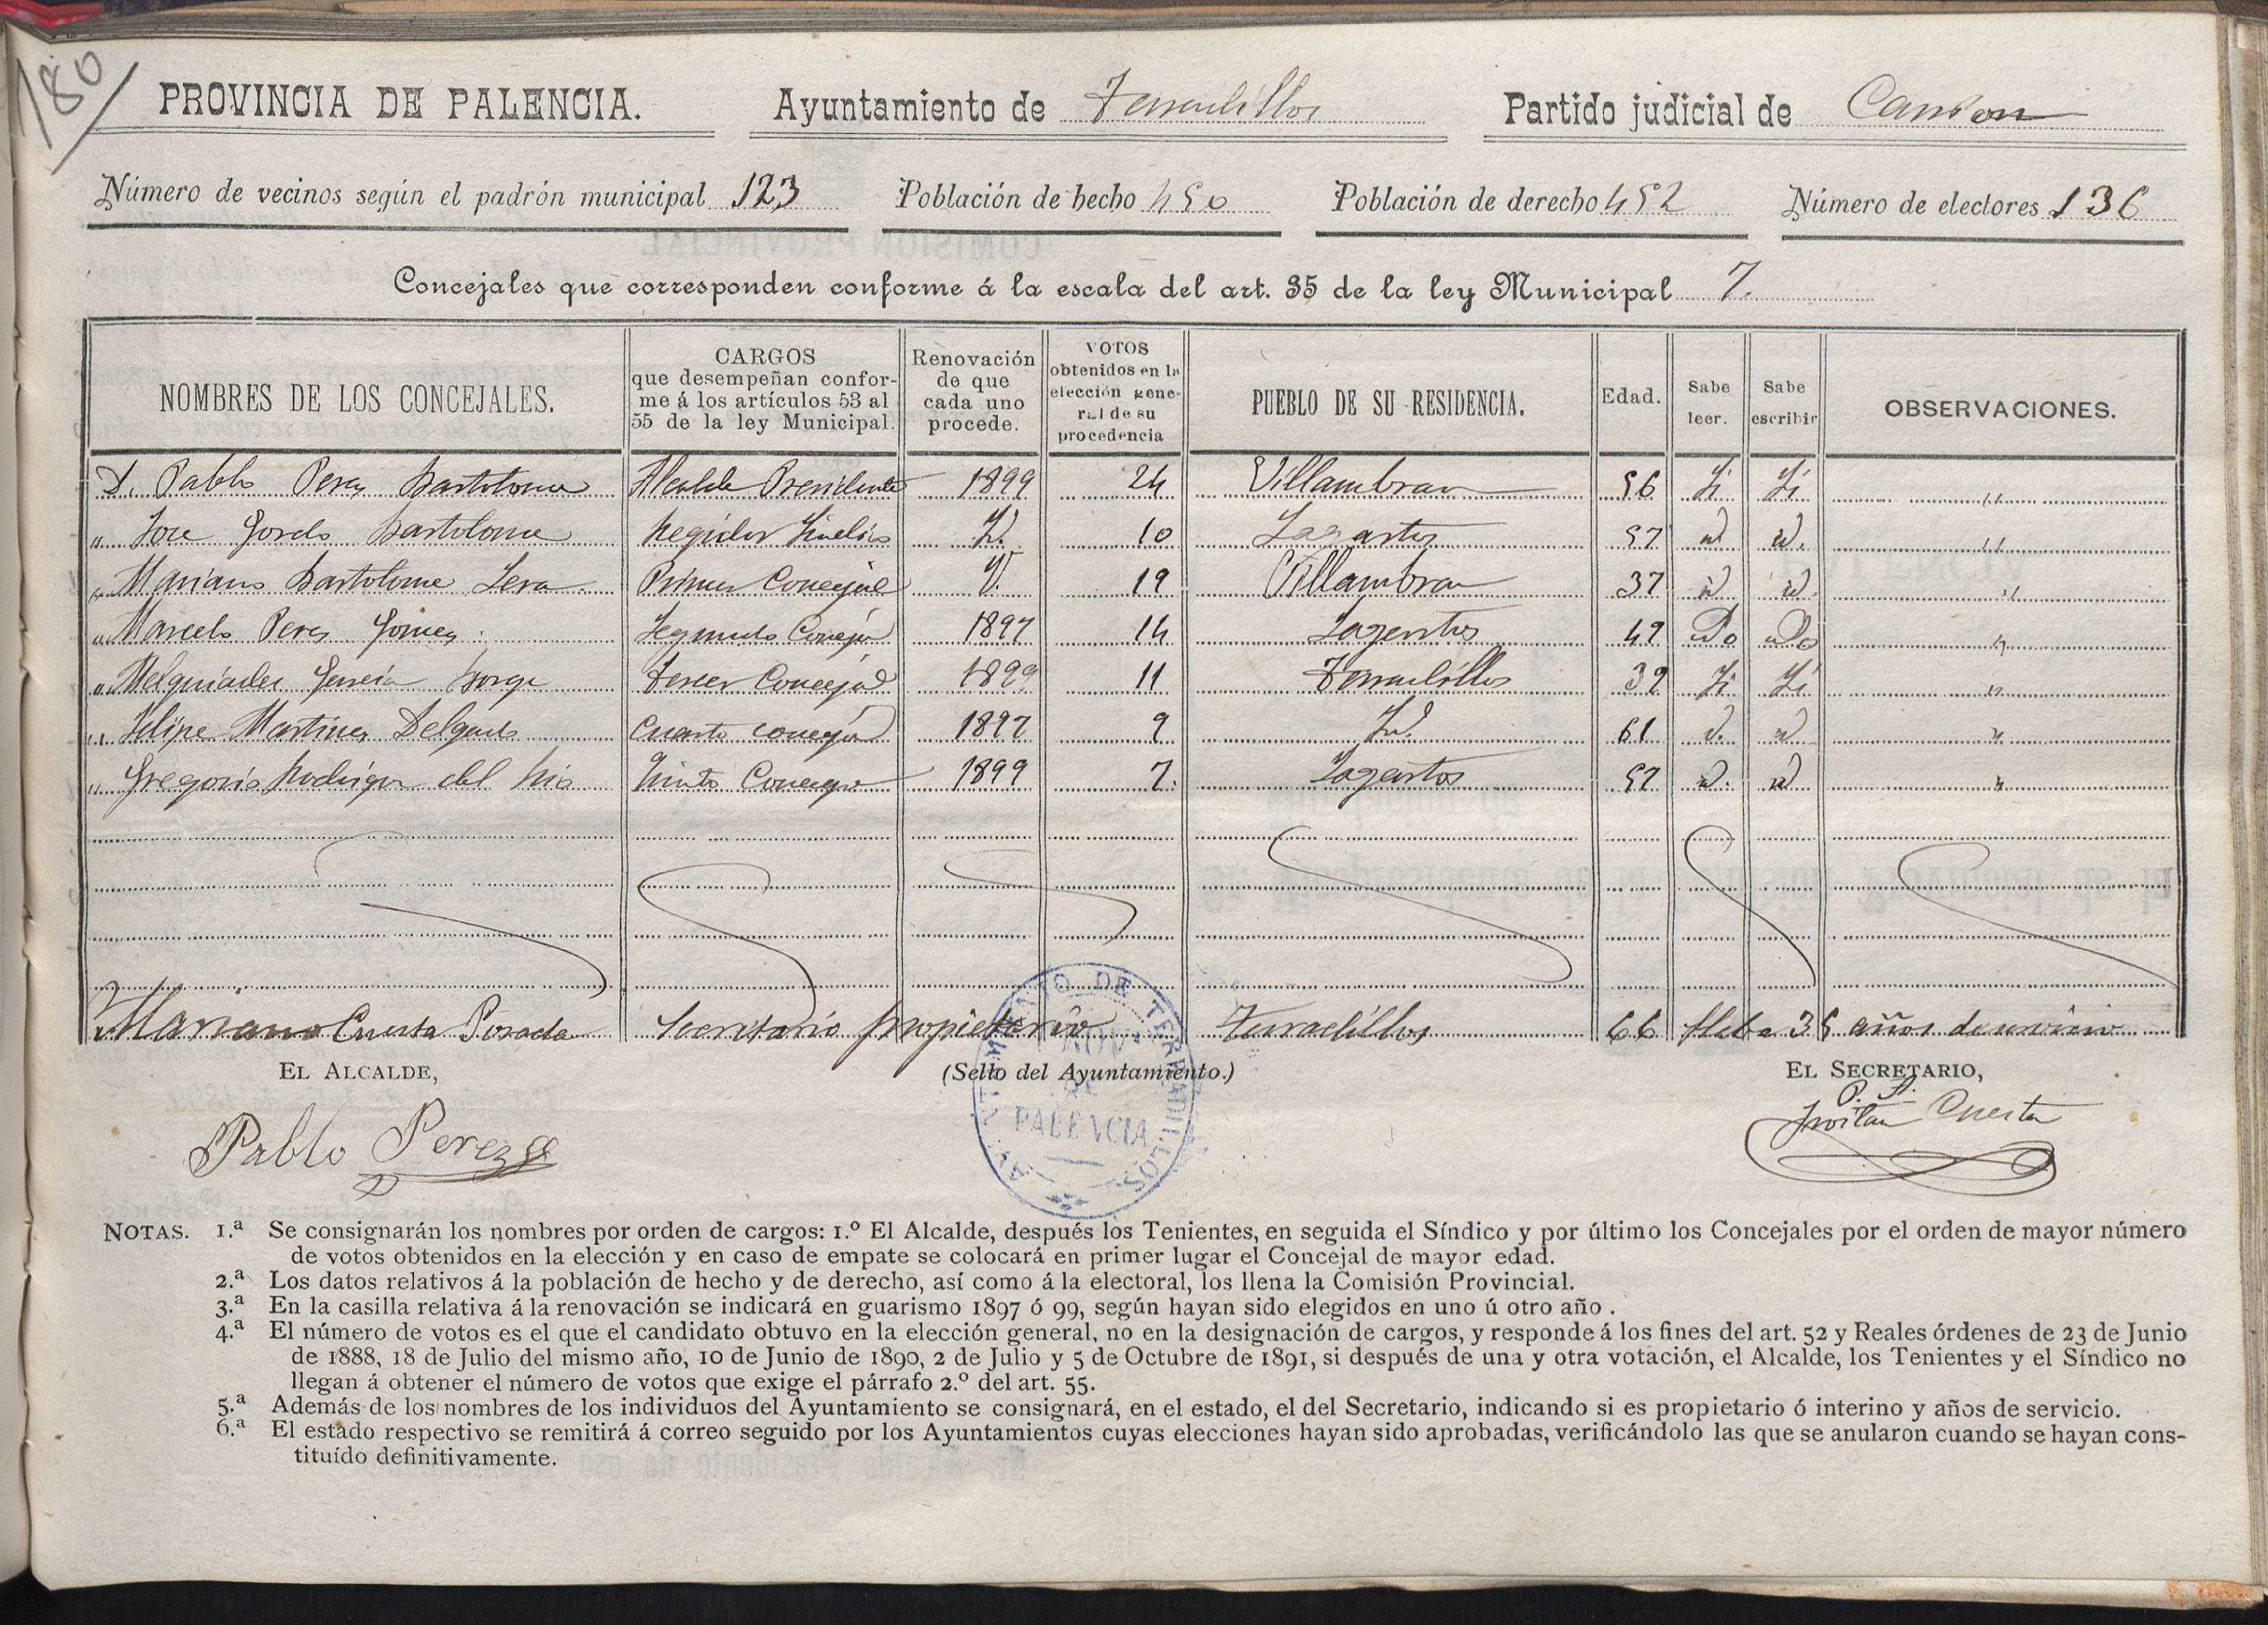 180
PROVINCIA DE PALENCIA. Ayuntamiento de Terradillos Partido judicial de Carrion
Número de vecinos según el padrón municipal 123 Población de hecho 450 Población de derecho 452 Número de electores 136
Concejales que corresponden conforme á la escala del art. 35 de la ley Municipal 7.
NOMBRES DE LOS CONCEJALES. CARGOS que desempeñan confor-me á los artículos 53 al 55 de la ley Municipal. Renovación de que cada uno procede. VOTOS obtenidos en la elección gene-ral de su procedencia PUEBLO DE SU RESIDENCIA. Edad. Sabe leer. Sabe escribir OBSERVACIONES.
D. Pablo Perez Bartolome Alcalde Presidente 1899 24 Villambran 56 Si Si "
" Jose Gordo Bartolome Regidor Sindico Id. 10 Lagartos 57 id id. "
" Mariano Bartolome Lera Primer Concejal Id. 19 Villambran 37 id id. "
" Marcelo Perez Gomez Segundo Concejal 1897 14 Lagartos 49 No No "
" Melquiades Garcia Borge Tercer Concejal 1899 11 Terradillos 39 Si Si "
" Felipe Martinez Delgado Cuarto concejal 1897 9 Id. 61 id. id "
" Gregorio Rodriguez del Rio Quinto Concejal 1899 7. Lagartos 57 id. id "
Mariano Cuesta Posada Secretario propietario Terradillos 66 lleba 35 años de servicio
EL ALCALDE, (Sello del Ayuntamiento.) EL SECRETARIO,
P. A.
Pablo Perez Froilan Cuesta
AYUNTAMIENTO DE TERRADILLOS
PALENCIA
NOTAS. 1.ª Se consignarán los nombres por orden de cargos: 1.º El Alcalde, después los Tenientes, en seguida el Síndico y por último los Concejales por el orden de mayor número
de votos obtenidos en la elección y en caso de empate se colocará en primer lugar el Concejal de mayor edad.
2.ª Los datos relativos á la población de hecho y de derecho, así como á la electoral, los llena la Comisión Provincial.
3.ª En la casilla relativa á la renovación se indicará en guarismo 1897 ó 99, según hayan sido elegidos en uno ú otro año .
4.ª El número de votos es el que el candidato obtuvo en la elección general, no en la designación de cargos, y responde á los fines del art. 52 y Reales órdenes de 23 de Junio
de 1888, 18 de Julio del mismo año, 10 de Junio de 1890, 2 de Julio y 5 de Octubre de 1891, si después de una y otra votación, el Alcalde, los Tenientes y el Síndico no
llegan á obtener el número de votos que exige el párrafo 2.º del art. 55.
5.ª Además de los nombres de los individuos del Ayuntamiento se consignará, en el estado, el del Secretario, indicando si es propietario ó interino y años de servicio.
6.ª El estado respectivo se remitirá á correo seguido por los Ayuntamientos cuyas elecciones hayan sido aprobadas, verificándolo las que se anularon cuando se hayan cons-
tituído definitivamente.